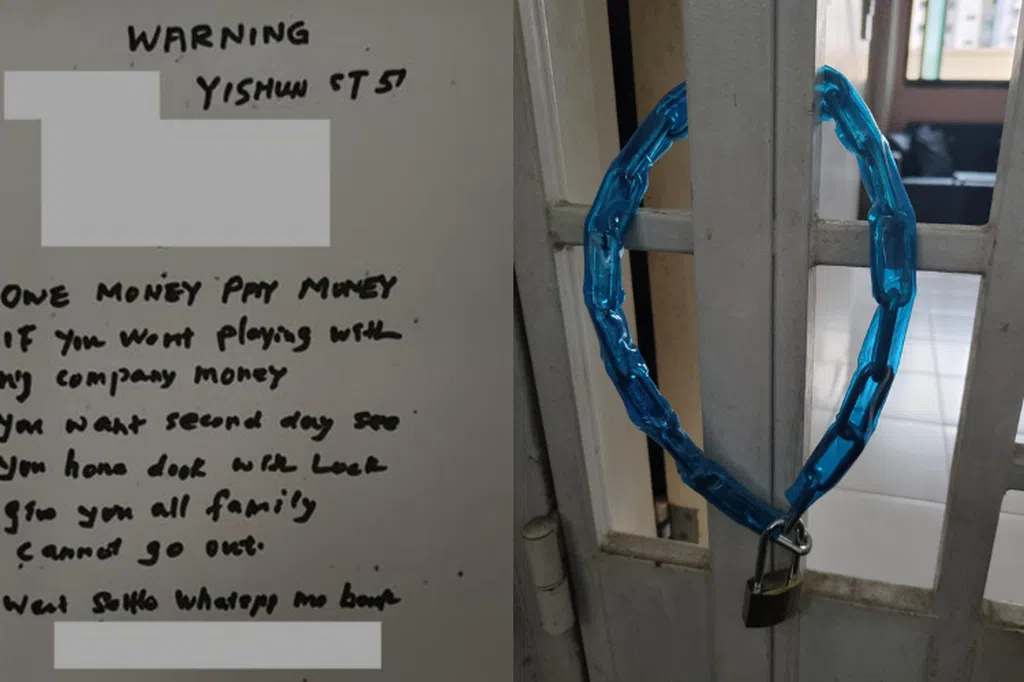 WARNING
YISHUN ST 51
OWE MONEY PAY MONEY
IF you want playing with
my company money
you want second day see
you home door with Lock
give you all family
cannot go out.
want settle whatapp me back